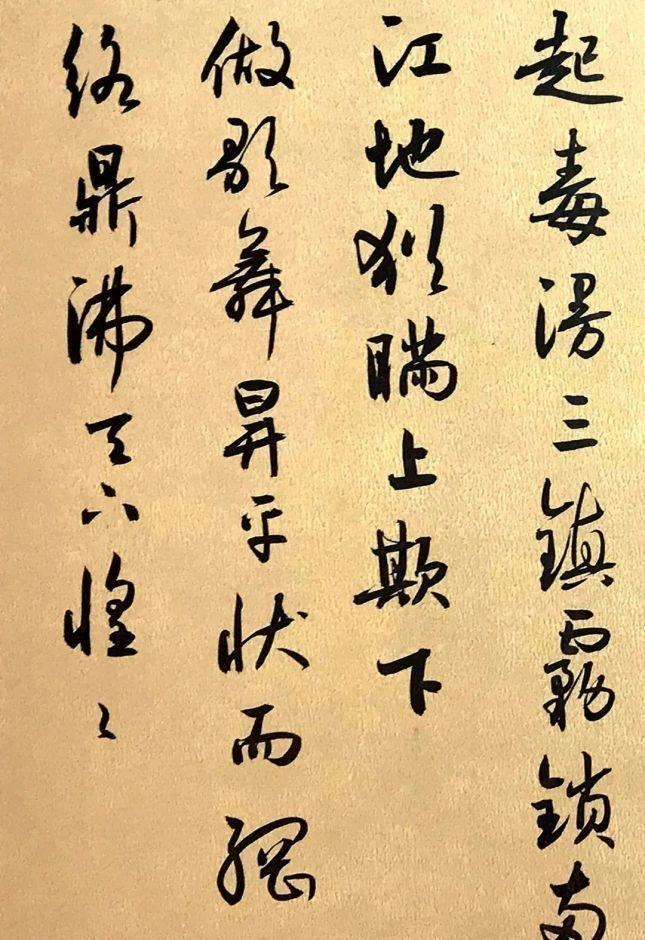 起毒漫三鎮霧鎖南
江地犹瞞上欺下
做歌舞昇平状而網
络鼎沸天下惶々